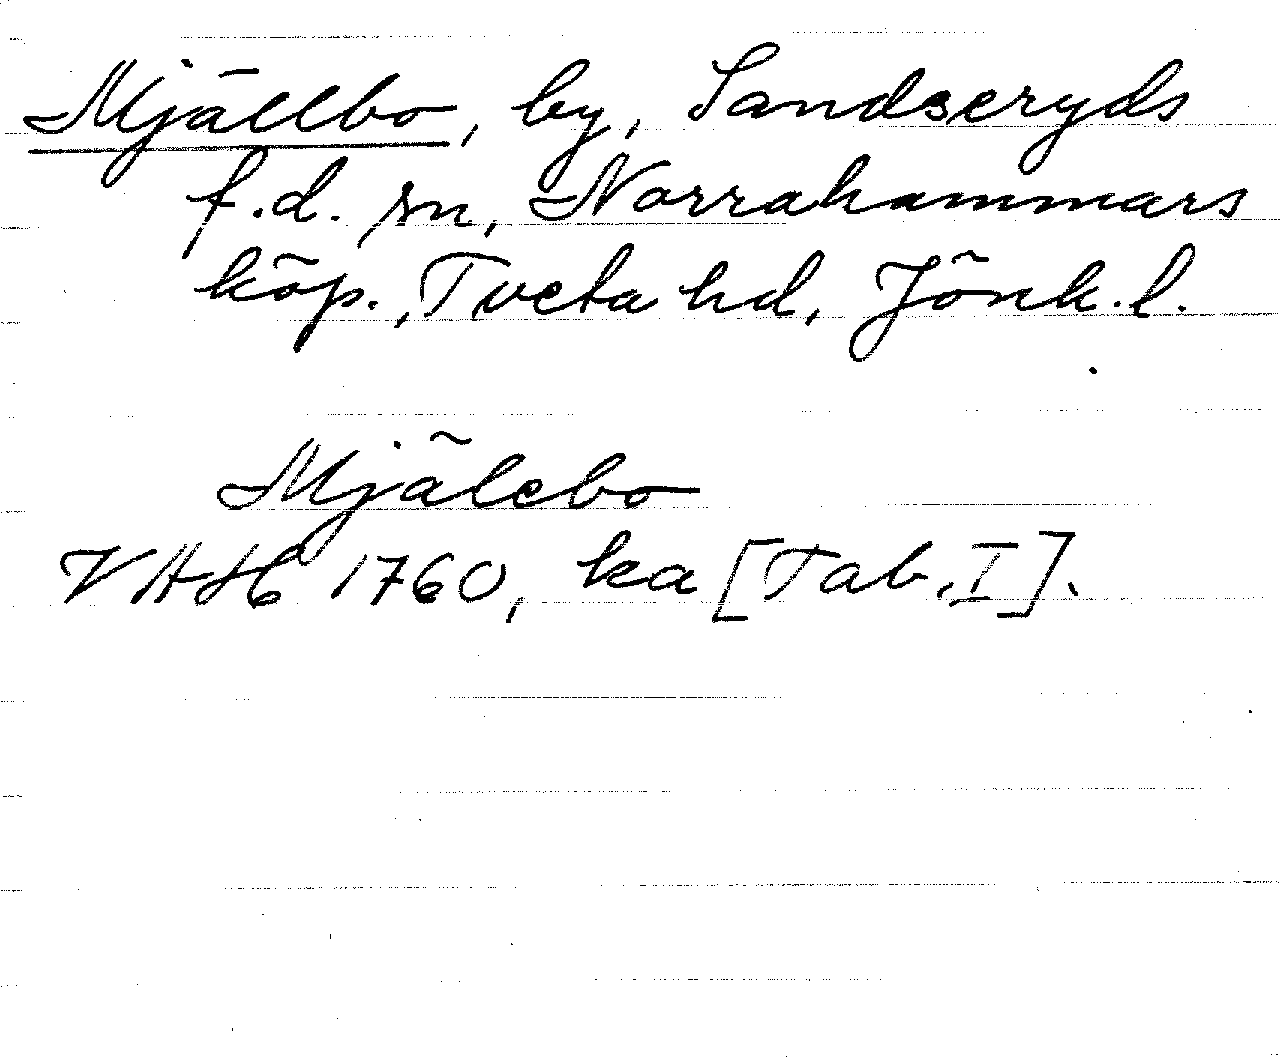 Mjällbo, by, Sandseryds
f.d. sn, Norrahammars
köp., Tveta hd, Jönk.l.
Mjälebo
VAH 1760, ka [Tab. I].